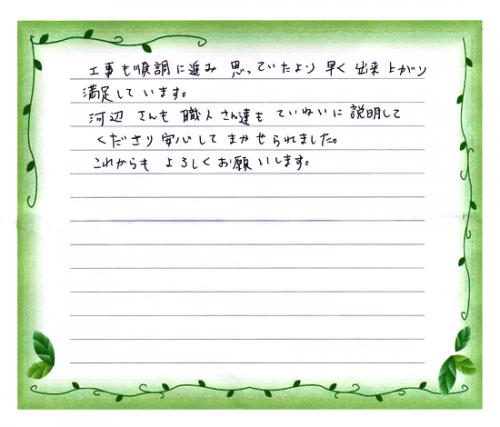 工事も順調に進み 思っていたより 早く 出来上がり
満足しています。
河辺 さんも 職人さん達も ていねいに 説明して
くださり 安心して まかせられました。
これからも よろしくお願いします。